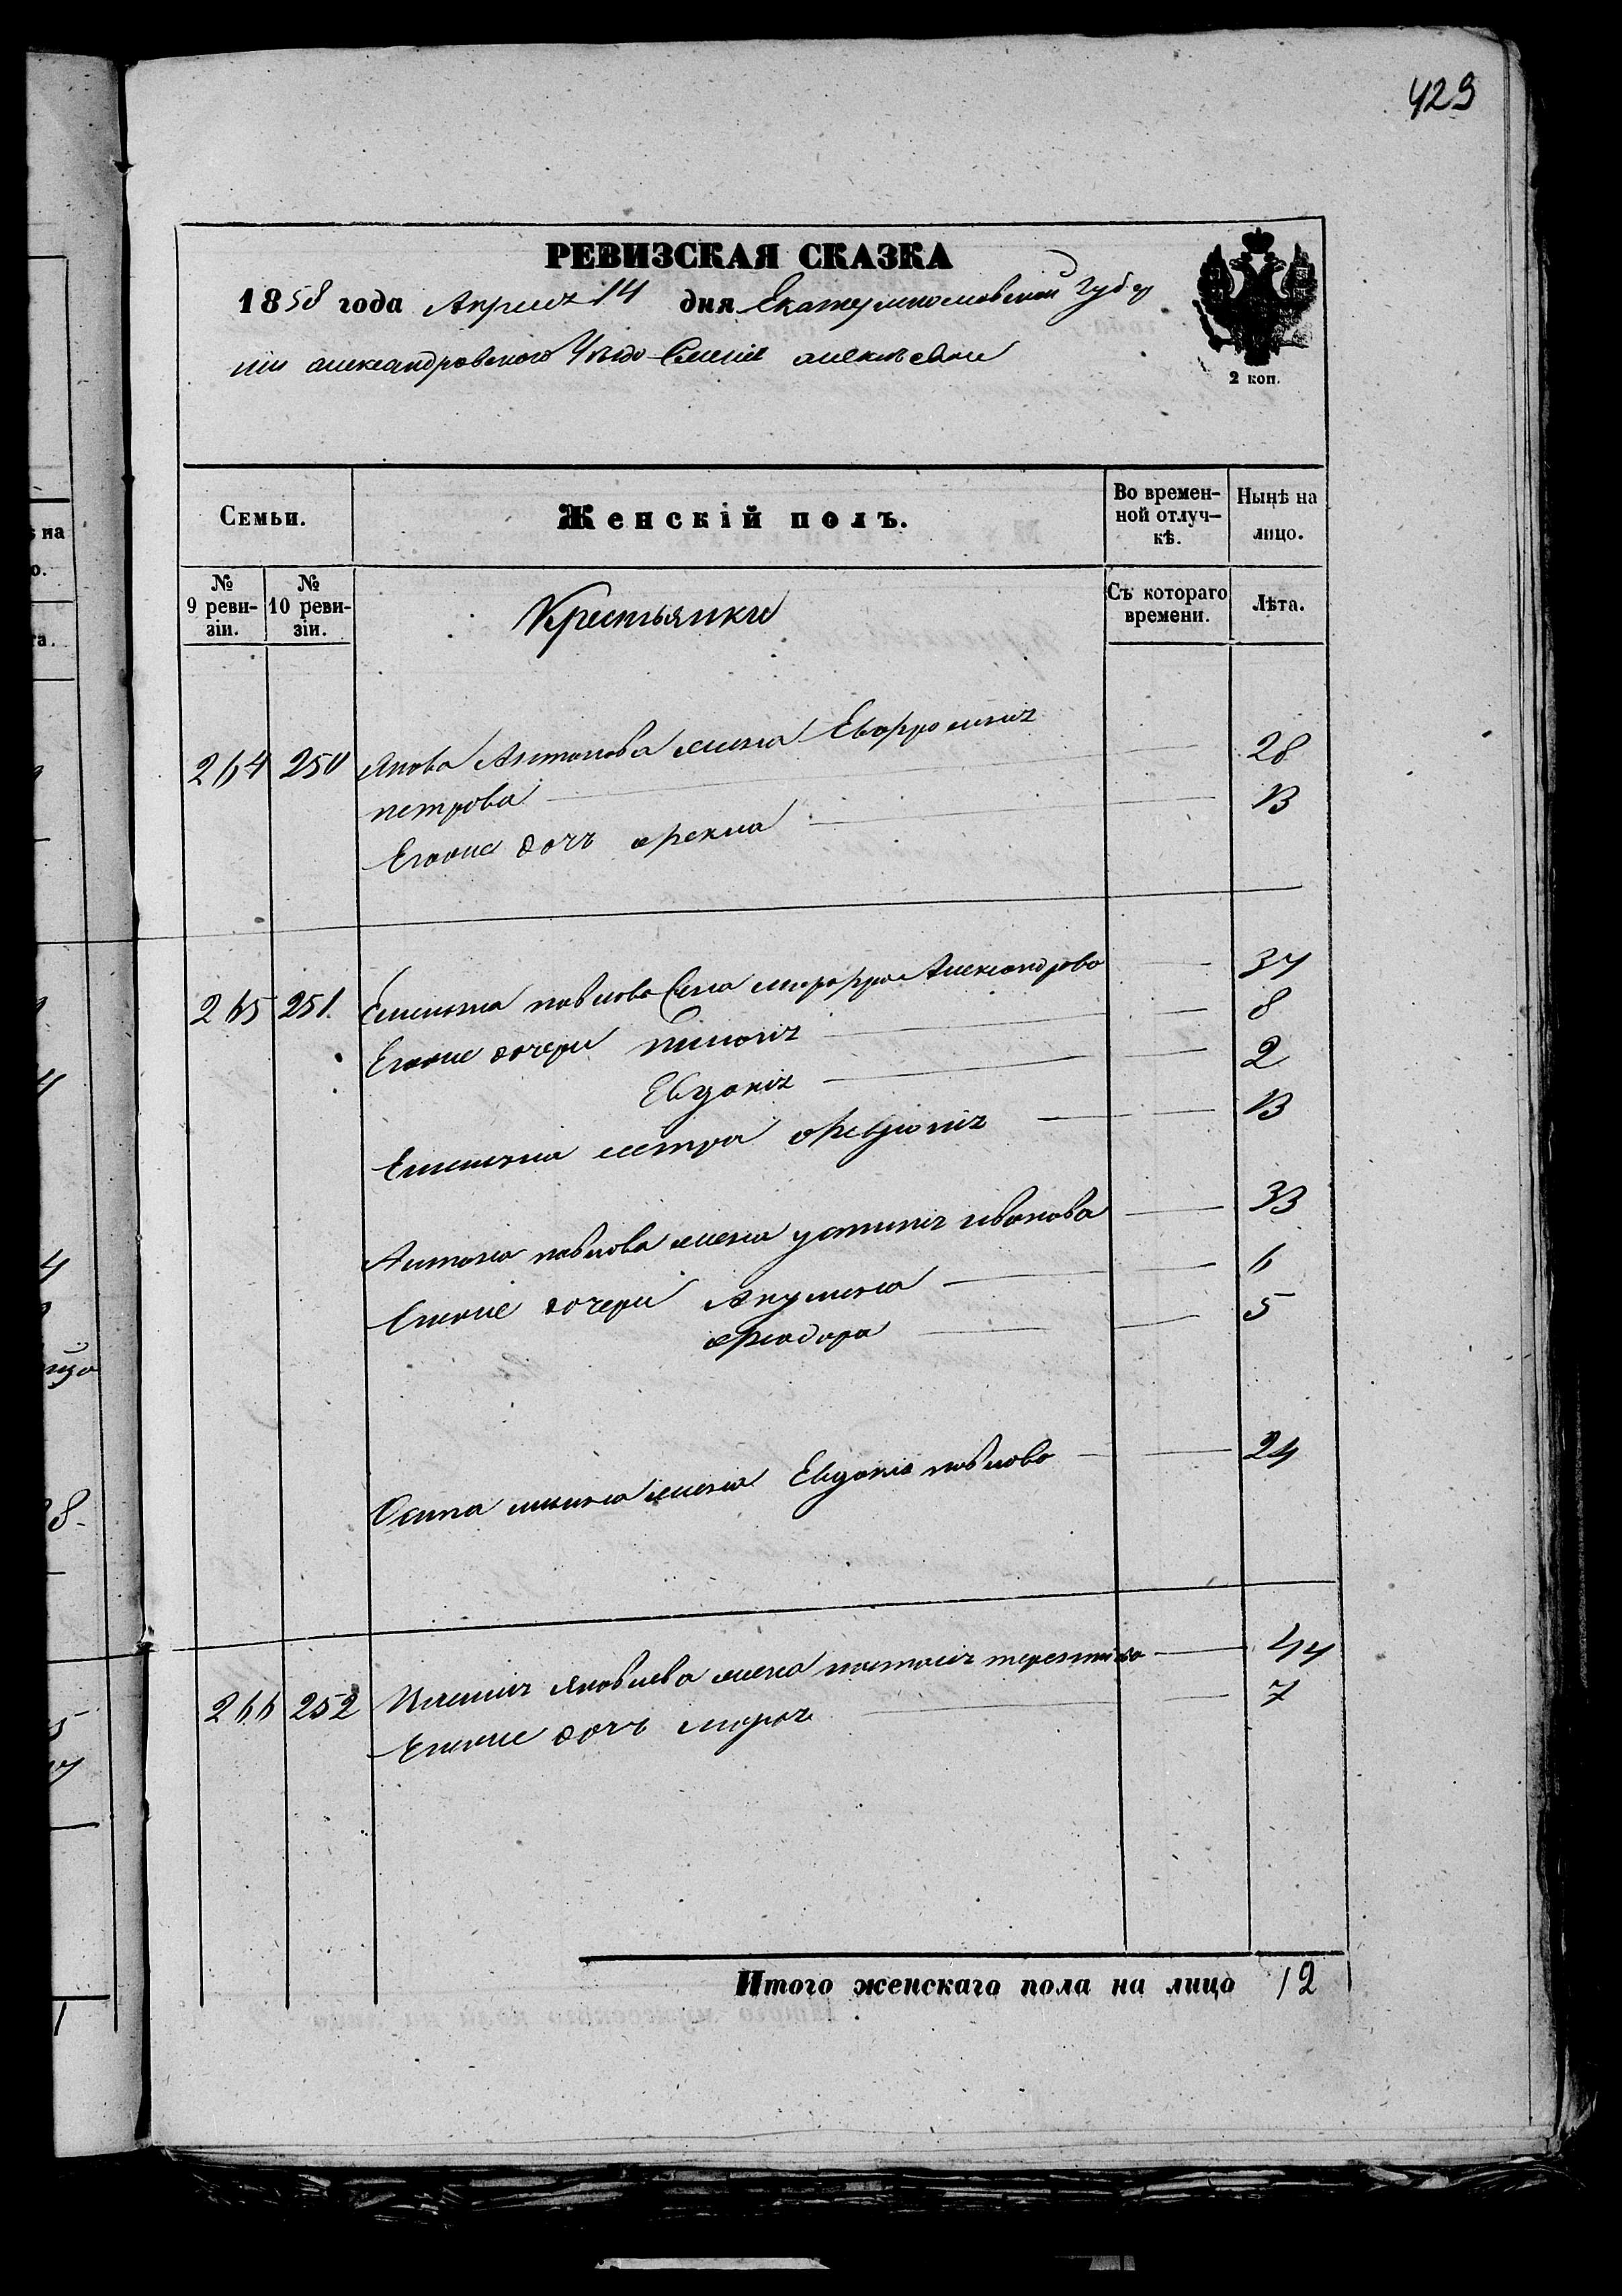 429
РЕВИЗСКАЯ СКАЗКА
1858 года Апреля 14 дня Екатеринославской Губер
нии александровского Уезда Селения
2 коп.
Семьи.
Женскій полъ.
Во времен-
ной отлуч-
кѣ.
Нынѣ на
лицо.
№
9 реви-
зіи.
№
10 реви-
зіи.
Крестьянки
Съ котораго
времени.
Лѣта.
264 250 Якова Антонова жена Евфросиния
петрова 28
Егоже дочь фекла 13
265 251. Емельяна павлова Александрова 37
Егоже дочери пелагия 8
Евдокия 2
Емельяна сестра февронія 13
Антона павлова жена устиния иванова 33
Егоже дочери Акулина 6
феодора 5
Осипа жена Евдокия павлова 24
266 252 Яковлева жена наталия терентиева 47
Егоже дочь мария 7
Итого женскаго пола на лицо 12